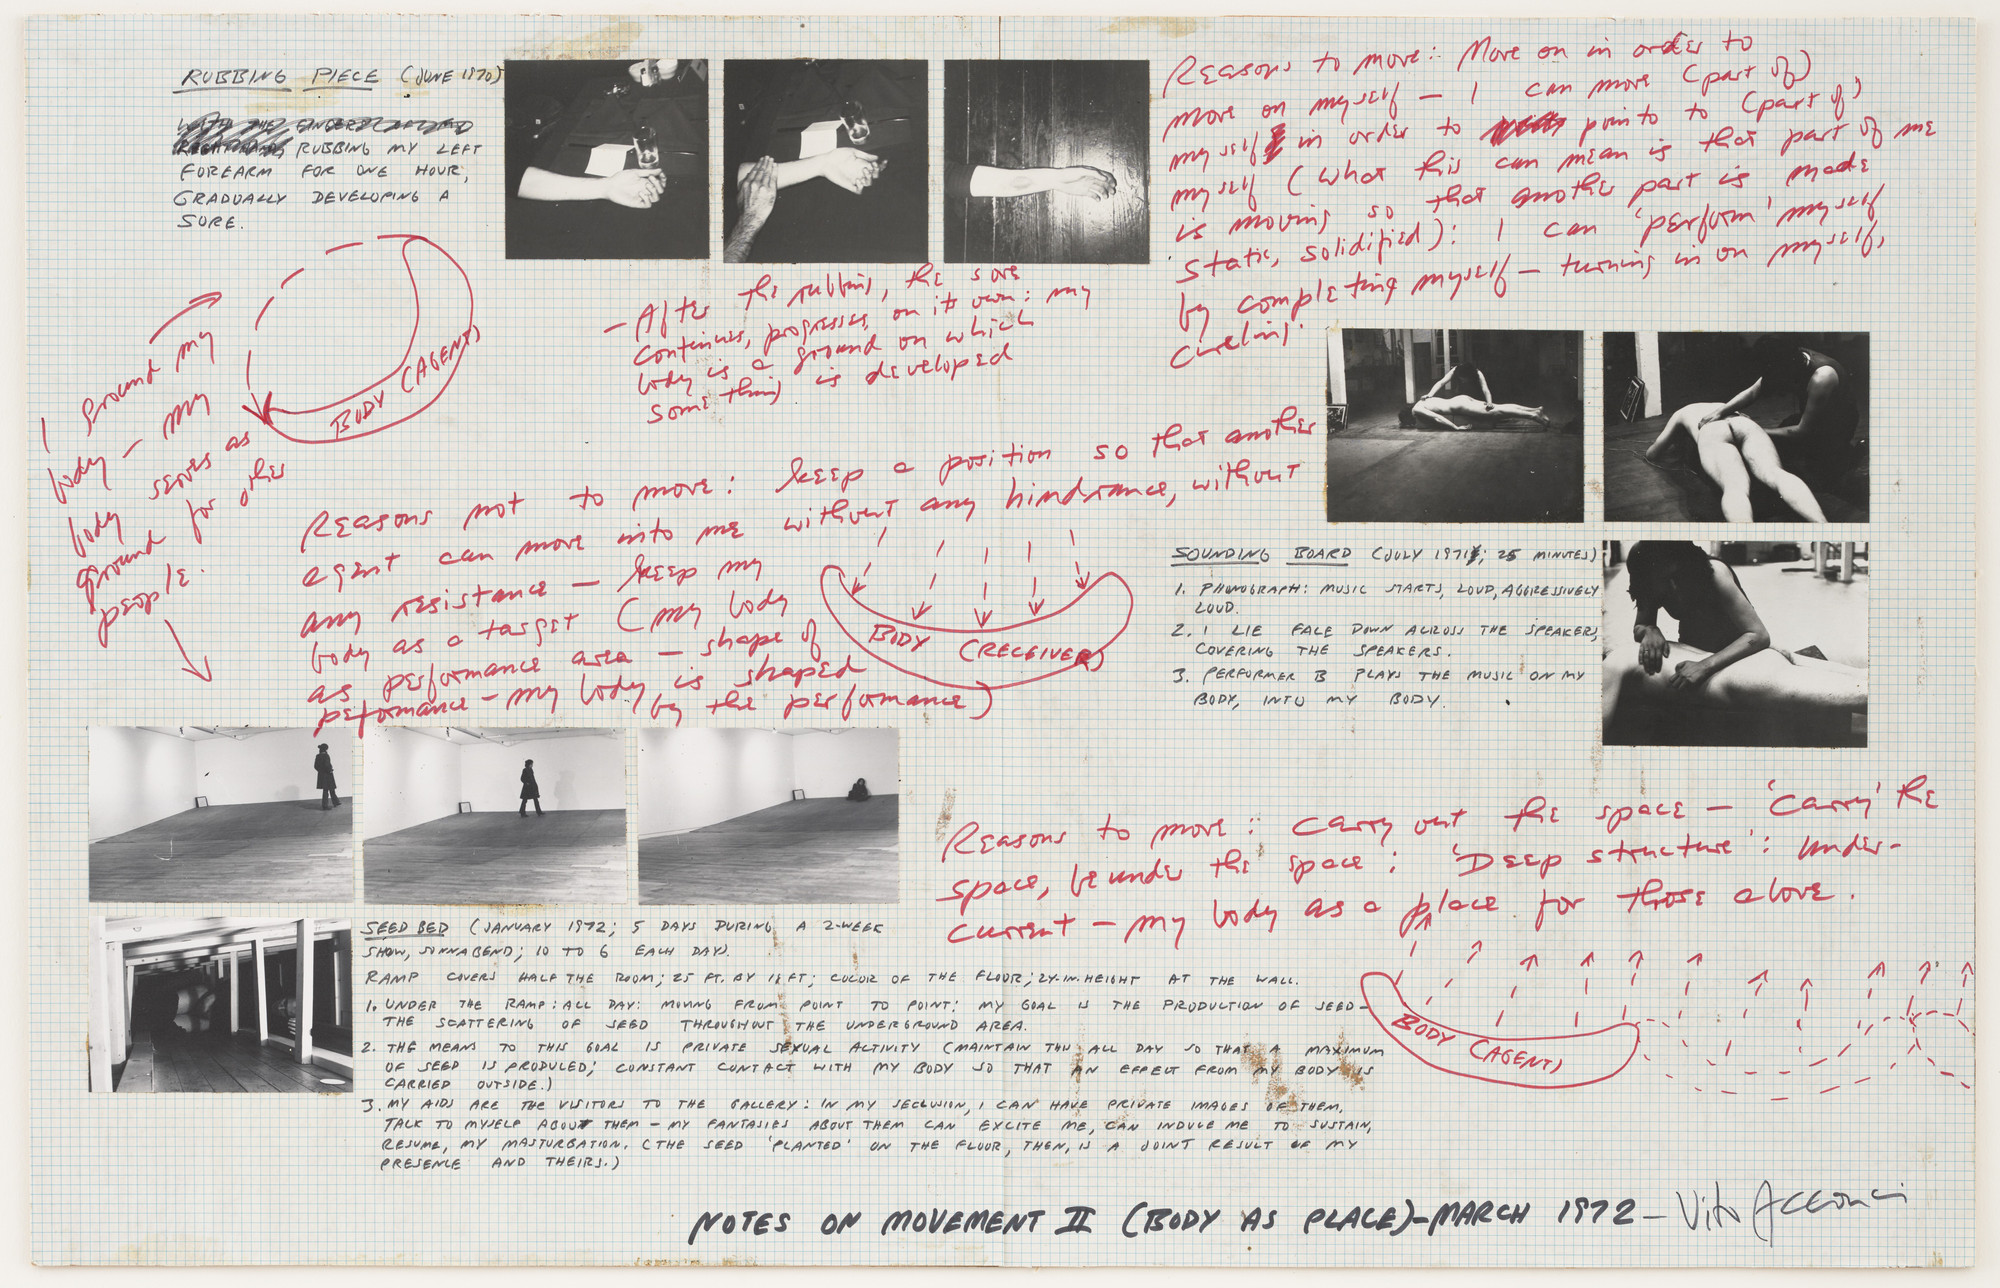 RUBBING PIECE (JUNE 1970)
RUBBING MY LEFT
FOREARM FOR ONE HOUR,
GRADUALLY DEVELOPING A
SORE.
Reasons to move: Move on in order to
move on myself — I can move (part of)
myself in order to point to (part of)
myself (what this can mean is that part of me
is moving so that another part is made
static, solidified): I can 'perform' myself
by completing myself — turning in on myself,
circling.
— After the rubbing, the sore
continues, progresses, on its own: my
body is a ground on which
something is developed
BODY (AGENT)
I ground my
body — my
body serves as
ground for other
people.
Reasons not to move: keep a position so that another
agent can move into me without any hindrance, without
any resistance — keep my
body as a target (my body
as performance area — shape of
performance — my body is shaped
by the performance)
BODY (RECEIVER)
SOUNDING BOARD (JULY 1971; 25 MINUTES)
1. PHONOGRAPH: MUSIC STARTS, LOUD, AGGRESSIVELY
LOUD.
2. I LIE FACE DOWN ACROSS THE SPEAKERS,
COVERING THE SPEAKERS.
3. PERFORMER B PLAYS THE MUSIC ON MY
BODY, INTO MY BODY.
Reasons to move: Carry out the space — 'Carry' the
space, be under the space: 'Deep structure': Under-
current — my body as a place for those above.
BODY (AGENT)
SEED BED (JANUARY 1972; 5 DAYS DURING A 2-WEEK
SHOW, SONNABEND; 10 TO 6 EACH DAY).
RAMP COVERS HALF THE ROOM; 25 FT. BY 18 FT; COLOR OF THE FLOOR; 24-IN. HEIGHT AT THE WALL.
1. UNDER THE RAMP: ALL DAY: MOVING FROM POINT TO POINT: MY GOAL IS THE PRODUCTION OF SEED —
THE SCATTERING OF SEED THROUGHOUT THE UNDERGROUND AREA.
2. THE MEANS TO THIS GOAL IS PRIVATE SEXUAL ACTIVITY (MAINTAIN THIS ALL DAY SO THAT A MAXIMUM
OF SEED IS PRODUCED; CONSTANT CONTACT WITH MY BODY SO THAT AN EFFECT FROM MY BODY IS
CARRIED OUTSIDE.)
3. MY AIDS ARE THE VISITORS TO THE GALLERY: IN MY SECLUSION, I CAN HAVE PRIVATE IMAGES OF THEM,
TALK TO MYSELF ABOUT THEM — MY FANTASIES ABOUT THEM CAN EXCITE ME, CAN INDUCE ME TO SUSTAIN,
RESUME, MY MASTURBATION. (THE SEED 'PLANTED' ON THE FLOOR, THEN, IS A JOINT RESULT OF MY
PRESENCE AND THEIRS.)
NOTES ON MOVEMENT II (BODY AS PLACE) — MARCH 1972 — Vito Acconci